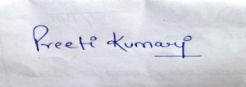 Preeti Kumari